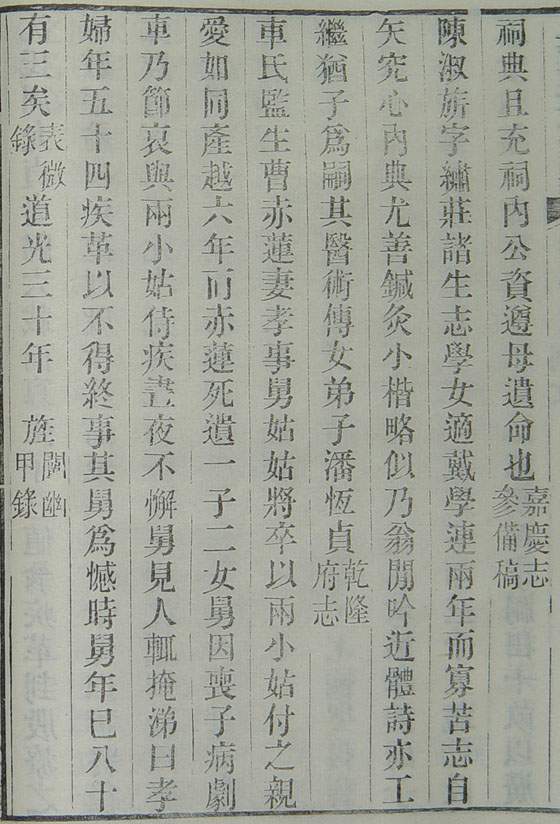 祠典且充祠內公資遵母遺命也嘉慶志參備稿
陳淑旂字繡莊諸生志學女適戴學連兩年而寡苦志自
矢究心內典尤善鍼灸小楷略似乃翁閒吟近體詩亦工
繼猶子爲嗣其醫術傳女弟子潘恆貞乾隆府志
車氏監生曹赤蓮妻孝事舅姑姑將卒以兩小姑付之親
愛如同產越六年而赤蓮死遺一子二女舅因喪子病劇
車乃節哀與兩小姑侍疾晝夜不懈舅見人輒掩涕曰孝
婦年五十四疾革以不得終事其舅爲憾時舅年巳八十
有三矣表微錄道光三十年旌闡幽甲錄